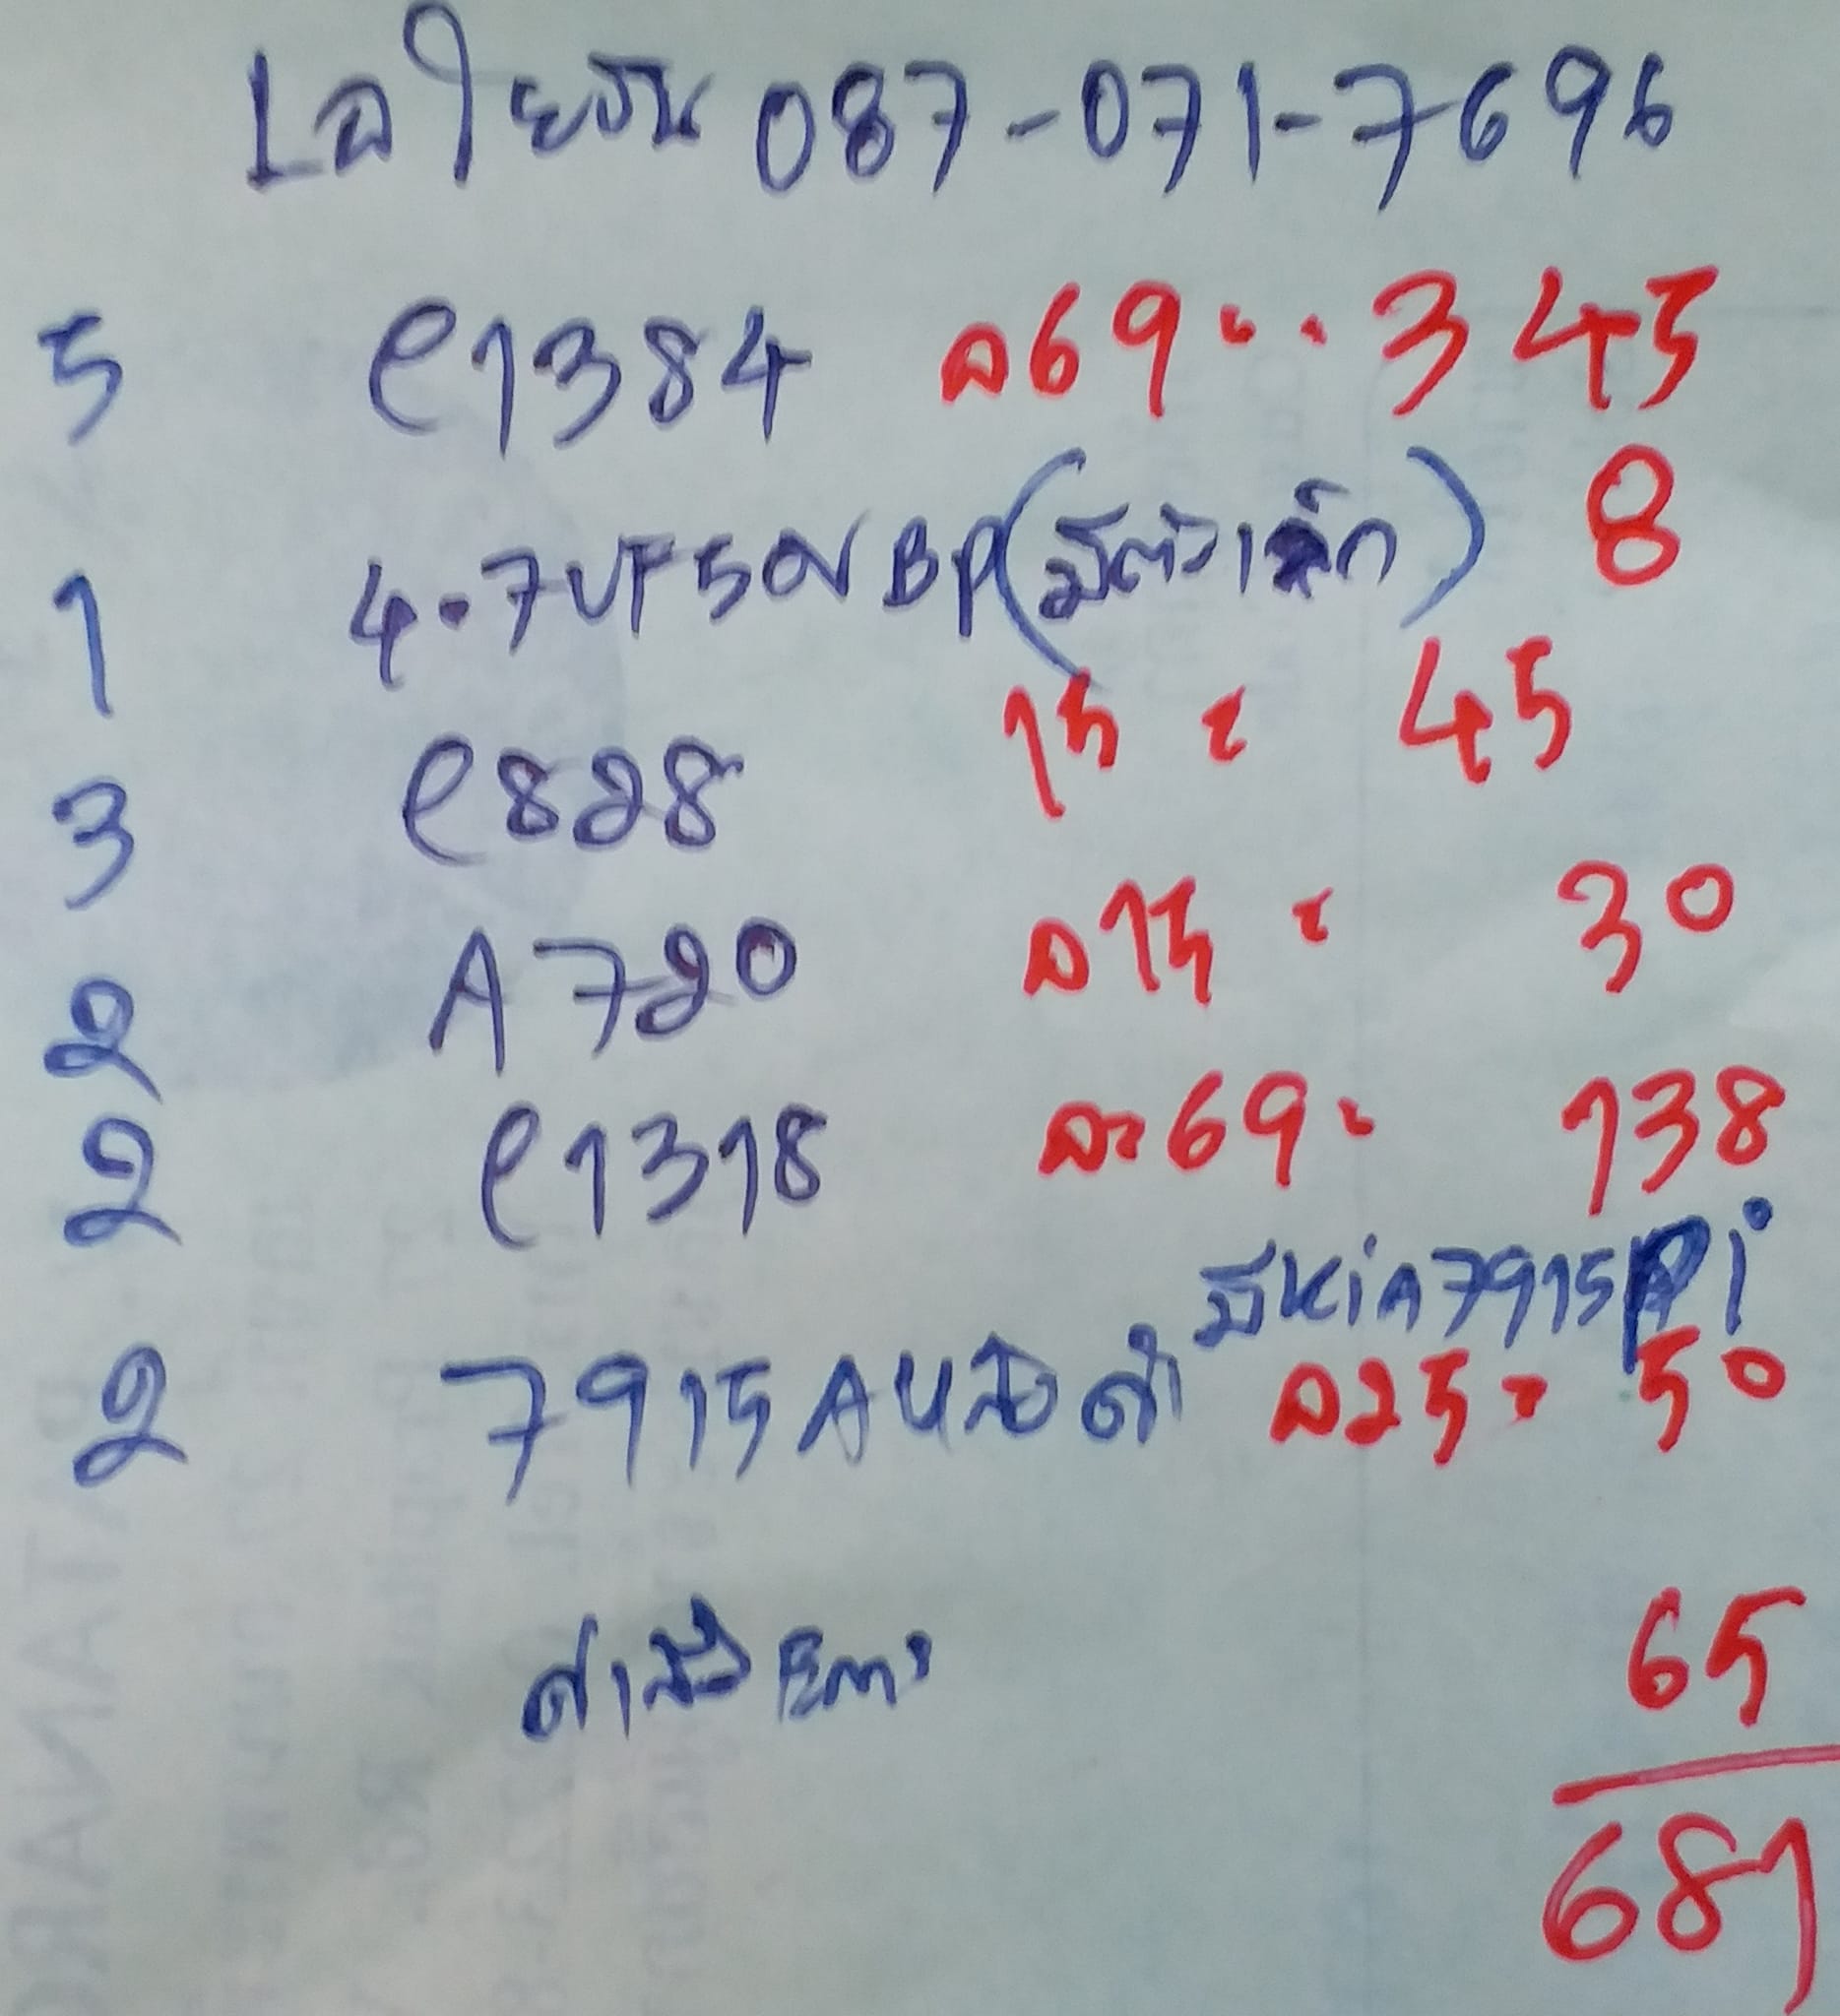 087-071-7696
5 C1384 ล69 = 345
1 4.7UF50V BP (มีตัวเล็ก) 8
3 C828 15 = 45
2 A720 ล15 = 30
2 C1318 ละ69 = 138
มีKiA7915Pi
2 7915Aหลังดำ ล25 = 50
ค่าส่ง Ems 65
681